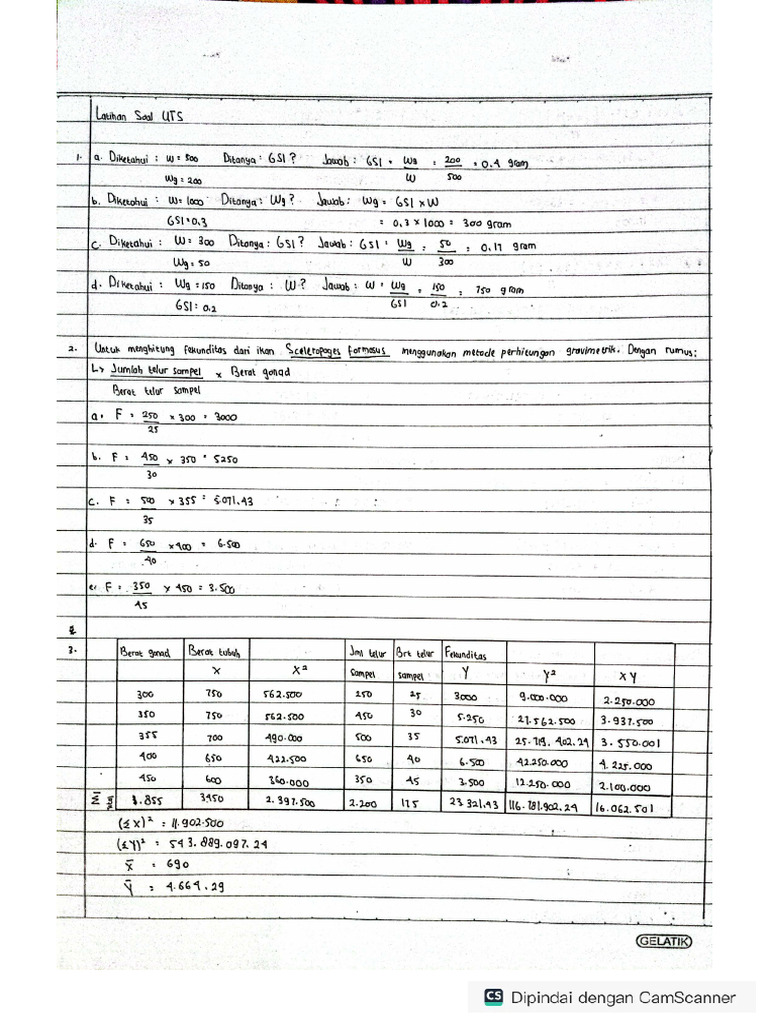 Latihan Soal UTS
1. a. Diketahui : W = 500 Ditanya : GSI ? Jawab : GSI = Wg = 200 = 0.4 gram
Wg = 200 W 500
b. Diketahui : W = 1000 Ditanya : Wg ? Jawab : Wg = GSI x W
GSI = 0.3 = 0.3 x 1000 = 300 gram
c. Diketahui : W = 300 Ditanya : GSI ? Jawab : GSI = Wg = 50 = 0,17 gram
Wg = 50 W 300
d. Diketahui : Wg = 150 Ditanya : W ? Jawab : W = Wg = 150 = 750 gram
GSI = 0.2 GSI 0.2
2. Untuk menghitung fekunditas dari ikan Sceleropages formosus menggunakan metode perhitungan gravimetrik. Dengan rumus :
L> Jumlah telur sampel x Berat gonad
Berat telur sampel
a. F = 250 x 300 = 3000
25
b. F = 450 x 350 = 5250
30
c. F = 500 x 355 = 5.071,43
35
d. F = 650 x 400 = 6.500
40
e. F = 350 x 450 = 3.500
45
3. Berat gonad Berat tubuh Jml telur Brt telur Fekunditas
X X² Sampel sampel Y Y² XY
300 750 562.500 250 25 3000 9.000.000 2.250.000
350 750 562.500 450 30 5.250 27.562.500 3.937.500
355 700 490.000 500 35 5.071,43 25.719.402,24 3.550.001
400 650 422.500 650 40 6.500 42.250.000 4.225.000
450 600 360.000 350 45 3.500 12.250.000 2.100.000
Σ Total 1.855 3450 2.397.500 2.200 175 23 321,43 116.781.902,24 16.062.501
(ΣX)² = 11.902.500
(ΣY)² = 543.889.097.24
X̄ = 690
Ȳ = 4.664,29
GELATIK
CS Dipindai dengan CamScanner